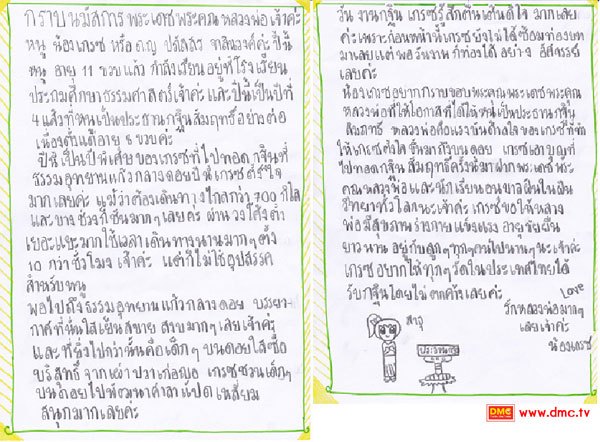 กราบนมัสการ พระเดชพระคุณ หลวงพ่อ เจ้าค่ะ
หนู น้องเกรซ หรือ ด.ญ. เจ้าค่ะ ปีนี้
หนู อายุ 11 ขวบแล้ว กำลังเรียนอยู่ที่โรงเรียน
ประถมศึกษาธรรมศาสตร์เจ้าค่ะ และปีนี้เป็นปีที่
4 แล้วที่หนูเป็นประธานกฐินสัมฤทธิ์อย่างต่อ
เนื่องตั้งแต่อายุ 8 ขวบค่ะ
ปีนี้เป็นปีพิเศษของเกรซที่ไปทอดกฐินที่
ธรรมอุทยานแก้วกลางดอย ปีนี้เกรซดีใจ
มากเลยค่ะ แม้ว่าต้องเดินทางไกลกว่า 700 กิโล
และบางช่วงก็ชันมากๆเลยค่ะ ผ่านวงโค้งตั้ง
เยอะแยะมากใช้เวลาเดินทางนานมากๆตั้ง
10 กว่าชั่วโมง เจ้าค่ะ แต่ก็ไม่ใช่อุปสรรค
สำหรับหนู
พอไปถึงธรรมอุทยานแก้วกลางดอย บรรยา
กาศที่นั่นใสเย็นสบาย สวยมากๆเลยเจ้าค่ะ
และที่ยิ่งไปกว่านั้นคือเด็กๆ บนดอยใสซื่อ
บริสุทธิ์ จากเผ่าปวาเก่อญอ เกรซชวนเด็กๆ
บนดอยไปพัฒนาศาลาแปดเหลี่ยม
สนุกมากเลยค่ะ
วัน งานกฐิน เกรซรู้สึกตื่นเต้นดีใจ มากเลย
ค่ะเพราะก่อนหน้านี้เกรซยังไม่ได้ซ้อมท่องบท
มาเลย แต่พอวันงาน ก็ท่องได้ อย่าง อัศจรรย์
เลยค่ะ
น้องเกรซอยากกราบขอบพระคุณพระเดชพระคุณ
หลวงพ่อที่ให้โอกาสที่ได้ให้หนูเป็นประธานกฐิน
สัมฤทธิ์ หลวงพ่อคือแรงบันดาลใจของเกรซที่ทำ
ให้เกรซตั้งใจขึ้นมาถึงบนดอย เกรซเอาบุญที่
ไปทอดกฐิน สัมฤทธิ์ครั้งนี้มาฝากพระเดชพระ
คุณหลวงพ่อ และนักเรียนอนุบาลฝันในฝัน
วิทยาทั่วโลกนะเจ้าค่ะ เกรซขอให้หลวง
พ่อมีสุขภาพร่างกายแข็งแรง อายุขัยยืน
ยาวนาน อยู่กับลูกๆทุกๆคนไปนานๆนะเจ้าค่ะ
เกรซอยากให้ทุกๆวัดในประเทศไทยได้
รับกฐินโดยไม่ตกค้างเลยค่ะ
Love
รักหลวงพ่อมากๆ
เลยเจ้าค่ะ
น้องเกรซ
สาธุ
DMC www.dmc.tv